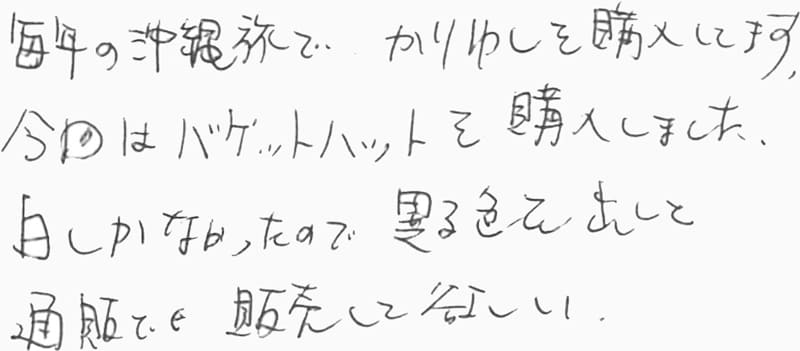 毎年の沖縄旅で かりゆしを購入してます,
今回はバゲットハットを購入しました.
白しかなかったので 異る色を出しと
通販でも 販売して欲しい.